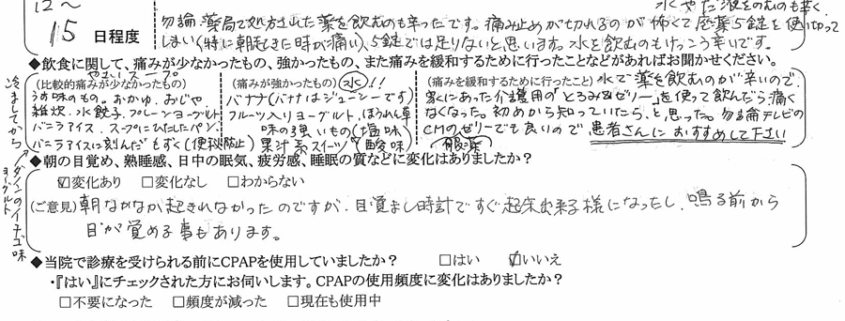 12〜15日程度
水やだ液をのむのも辛く、
勿論、薬局で処方された薬を飲むのも辛ったです。痛み止めが切れるのが怖くて座薬5錠を使い切って
しまい(特に朝起きた時が痛い)、5錠では足りないと思います。水を飲むのもけっこう辛いです。
◆飲食に関して、痛みが少なかったもの、強かったもの、また痛みを緩和するために行ったことなどがあればお聞かせください。
(比較的痛みが少なかったもの)
やさいスープ
うす味のもの。おかゆ、おじや
雑炊、水餃子、プレーンヨーグルト
バニラアイス、スープにひたしたパン
バニラアイスに刻んだもずく(便秘防止)
冷ましてから
ダノンのイチゴ味
ヨーグルト
(痛みが強かったもの) 水!!
バナナ(バナナはジューシーです)
フルーツ入りヨーグルト、ほうれん草
味の強いもの(塩味
果汁系スイーツ 酸味)
(痛みを緩和するために行ったこと) 水で薬を飲むのが辛いので、
家にあった介護用の「とろみ&ゼリー」を使って飲んだら痛く
なくなった。初めから知っていたら、と思った。勿論テレビの
CMのゼリーでも良いので患者さんにおすすめして下さい
(服薬)
◆朝の目覚め、熟睡感、日中の眠気、疲労感、睡眠の質などに変化はありましたか?
☑変化あり □変化なし □わからない
(ご意見) 朝なかなか起きれなかったのですが、目覚まし時計ですぐ起床出来る様になったし、鳴る前から
目が覚める事もあります。
◆当院で診療を受けられる前にCPAPを使用していましたか? □はい ☑いいえ
・『はい』にチェックされた方にお伺いします。CPAPの使用頻度に変化はありましたか?
□不要になった □頻度が減った □現在も使用中